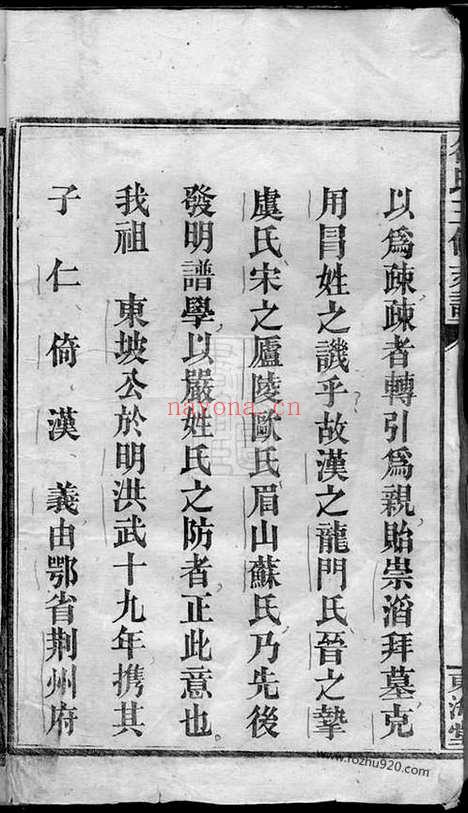 以為疎疎者轉引為親貽崇滔拜墓克
用冒姓之譏乎故漢之龍門氏晉之摯
虞氏宋之廬陵歐氏眉山蘇氏乃先後
發明譜學以嚴姓氏之防者正此意也
我祖 東坡公於明洪武十九年携其
子仁倚漢 義由鄂省荆州府
nayona.cn
www.rozhu920.com